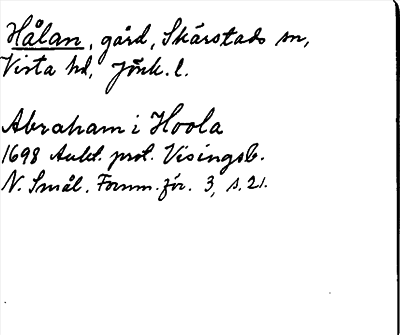 Hålan, gård, Skärstads sn,
Vista hd, Jönk. l.
Abraham i Hoola
1698 Aukt. prot. Visingsb.
N. Smål. Fornm. för. 3, s. 21.